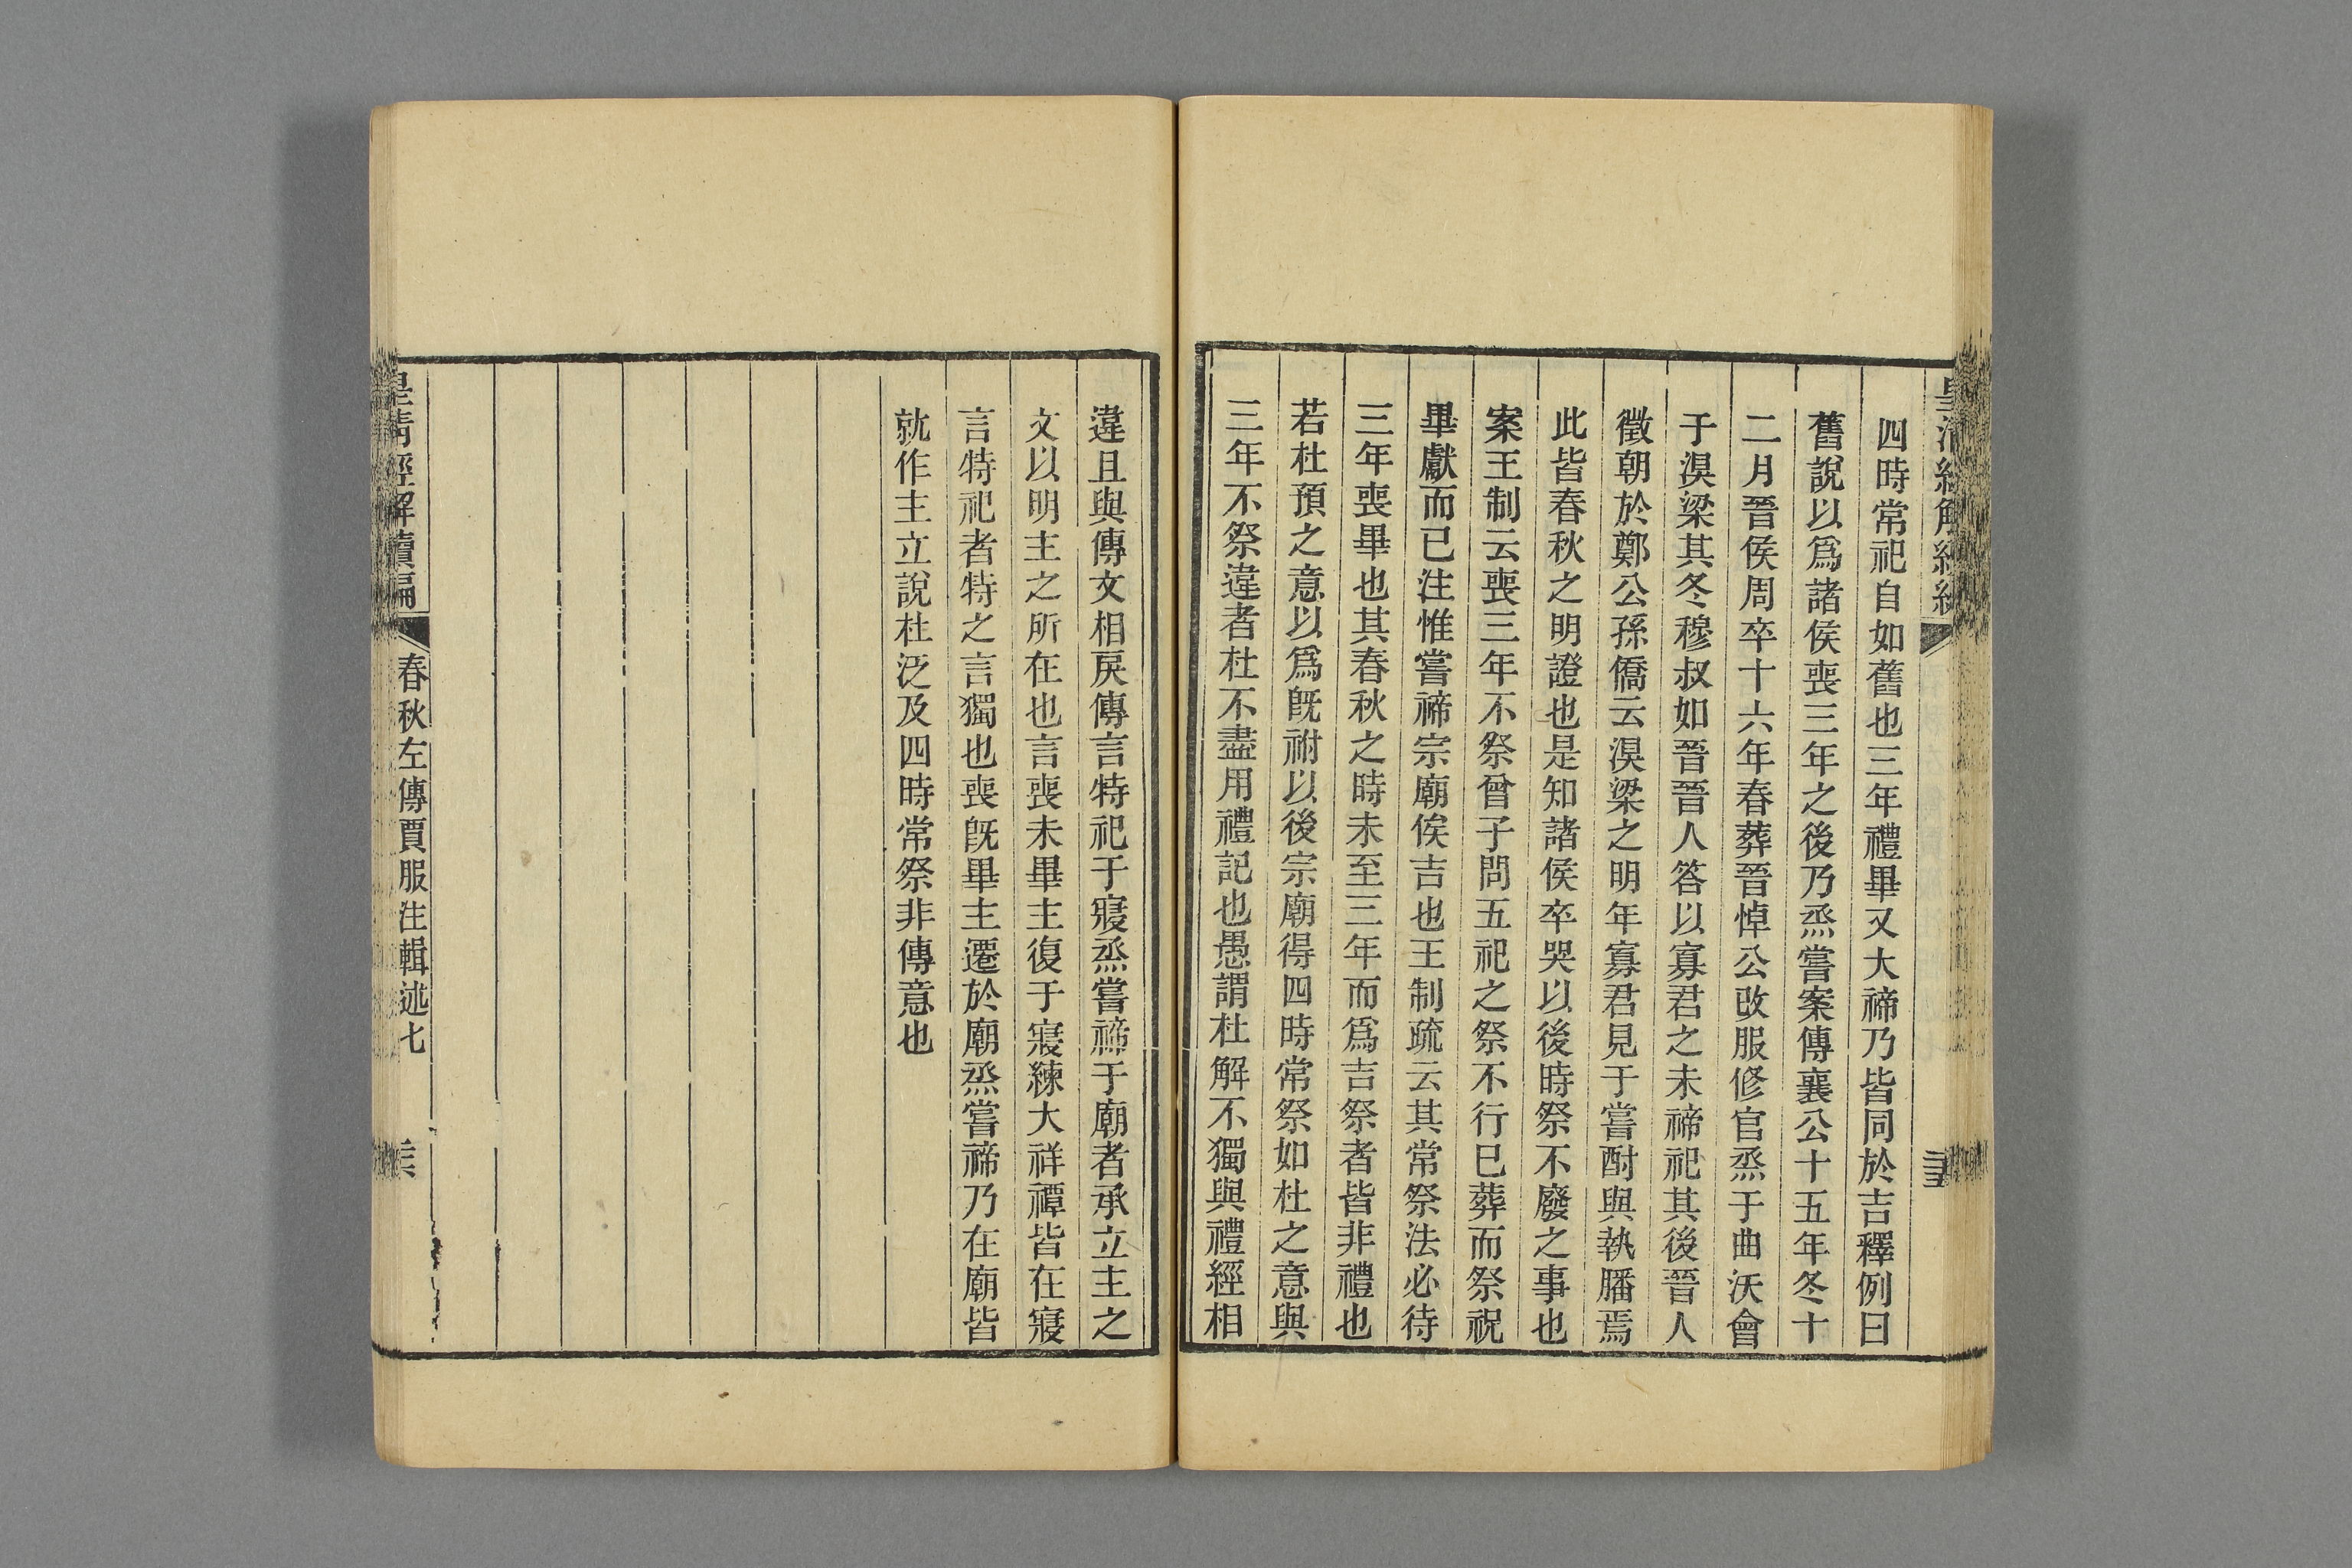 四時常祀自如舊也三年禮畢又大禘乃皆同於吉釋例曰
舊說以爲諸侯喪三年之後乃烝嘗案傳襄公十五年冬十
二月晉侯周卒十六年春葬晉悼公改服修官烝于曲沃會
于湨梁其冬穆叔如晉晉人答以寡君之未禘祀其後晉人
徵朝於鄭公孫僑云湨梁之明年寡君見于嘗酎與執膰焉
此皆春秋之明證也是知諸侯卒哭以後時祭不廢之事也
案王制云喪三年不祭曾子問五祀之祭不行已葬而祭祝
畢獻而已注惟嘗禘宗廟俟吉也王制疏云其常祭法必待
三年喪畢也其春秋之時未至三年而爲吉祭者皆非禮也
若杜預之意以爲旣祔以後宗廟得四時常祭如杜之意與
三年不祭違者杜不盡用禮記也愚謂杜解不獨與禮經相
違且與傳文相戾傳言特祀于寢烝嘗禘于廟者承立主之
文以明主之所在也言喪未畢主復于寢練大祥禫皆在寢
言特祀者特之言獨也喪旣畢主遷於廟烝嘗禘乃在廟皆
就作主立說杜泛及四時常祭非傳意也
皇清經解續編
春秋左傳賈服注輯述七